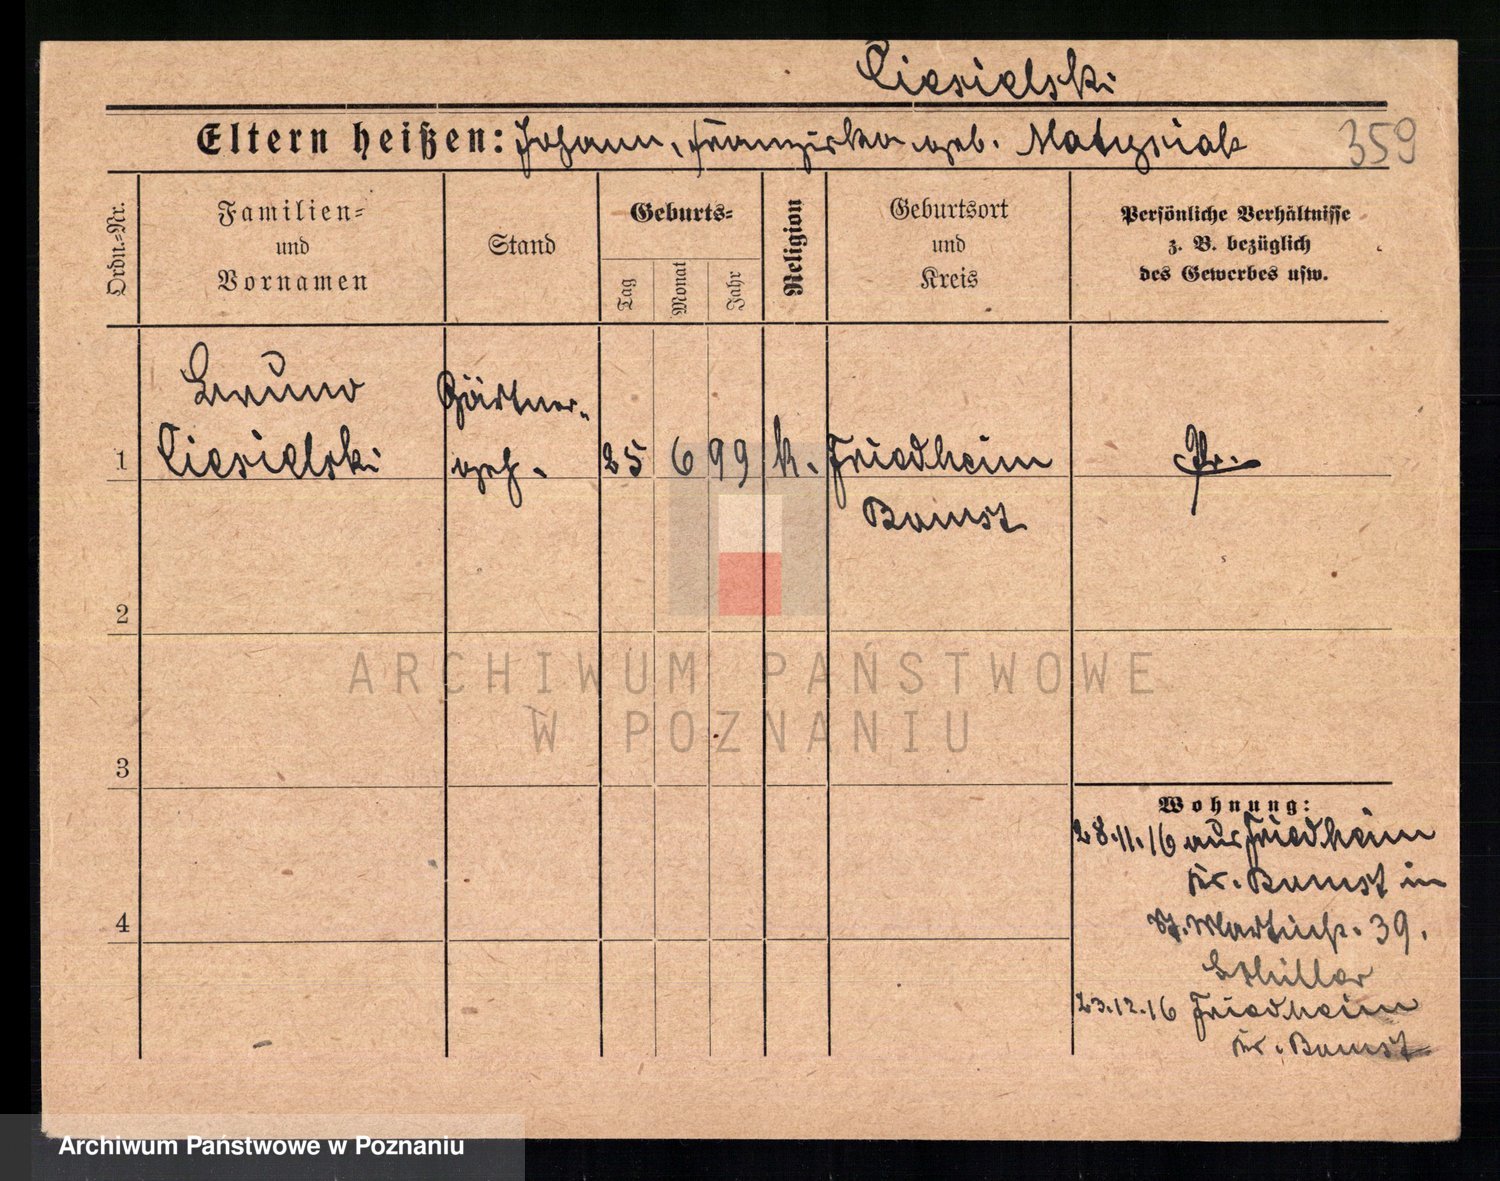 Ciesielski
Eltern heißen: Johann, Franziska geb. Matysiak
359
Ordn.-Nr.
Familien-
und
Vornamen
Stand
Geburts-
Tag
Monat
Jahr
Religion
Geburtsort
und
Kreis
Persönliche Verhältnisse
z. B. bezüglich
des Gewerbes usw.
Bruno
Gärtner-
1 Ciesielski geh. 25 6 99 k. Friedheim Pr.
Bomst
2
ARCHIWUM PAŃSTWOWE
W POZNANIU
3
Wohnung:
28.11.16 aus Friedheim
Kr. Bomst in
4
St. Martinstr. 39.
b Schiller
23.12.16 Friedheim
Kr. Bomst
Archiwum Państwowe w Poznaniu